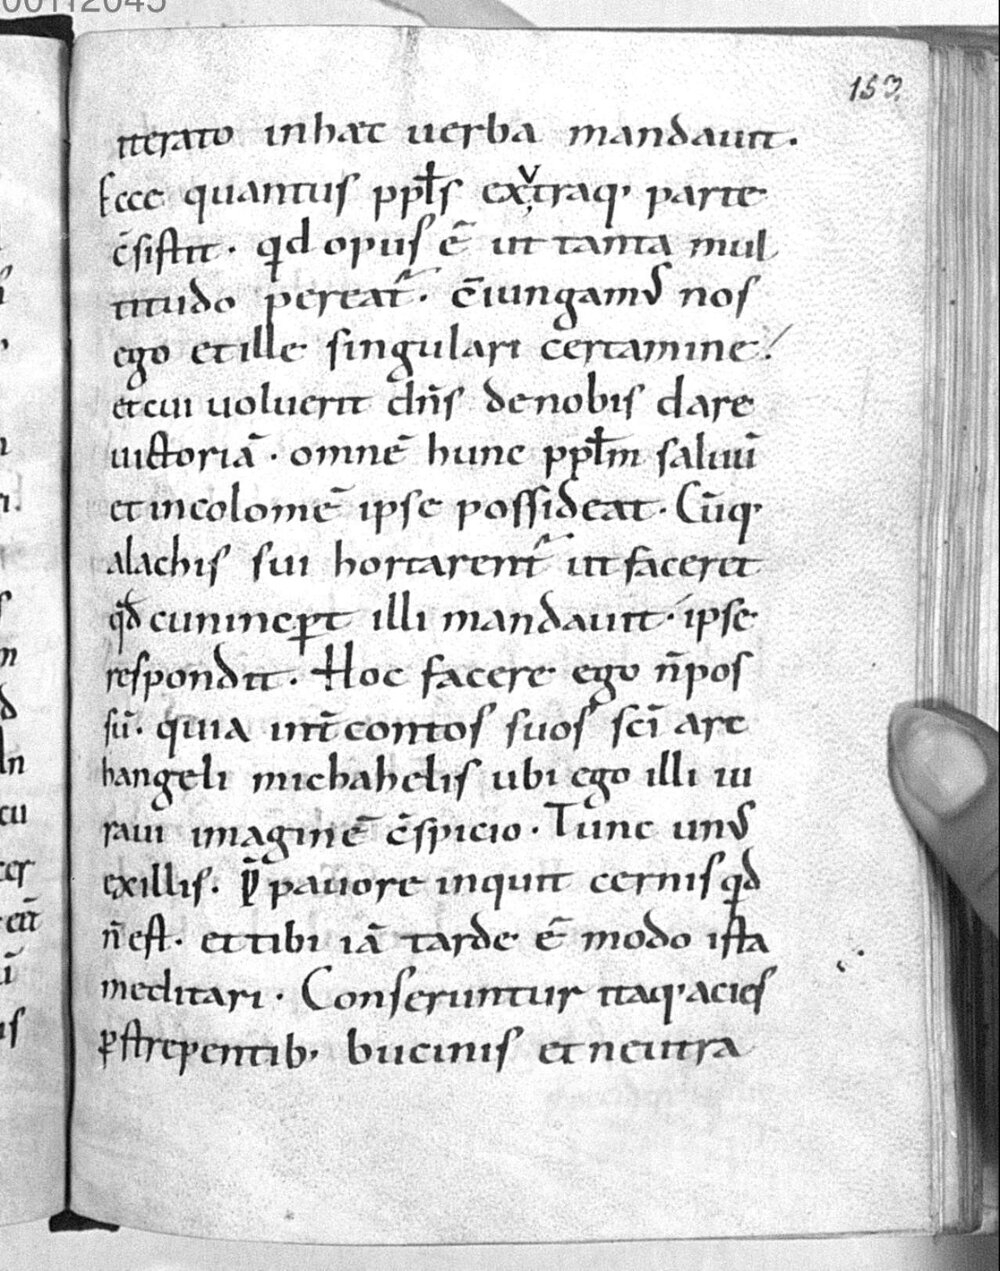 153.
iterato in hæc uerba mandauit.
Ecce quantus ppłs ex utraq; parte
c̄sistit. qđ opus ē ut tanta mul
titudo pereat᷑. c̄iungamus nos
ego et ille singulari certamine.
et cui uoluerit dn̄s de nobis dare
uictoriā. omnē hunc ppłm saluū
et incolomē ipse possideat. Cūq;
alachis sui hortarent᷑ ut faceret
qđ cunincꝑt illi mandauit. ipse
respondit. Hoc facere ego n̄ pos
sū. quia int̄ contos suos sc̄i arc
hangeli michahelis ubi ego illi iu
raui imaginē c̄spicio. Tunc unus
ex illis. p̄ pauore inquit cernis qđ
n̄ est. et tibi iā tarde ē modo ista
meditari. Conseruntur itaq; acies
ꝑstrepentib; bucinis et neutra